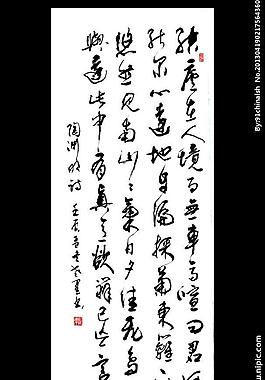 結廬在人境而無車馬喧問君何
能爾心遠地自偏採菊東籬下
悠然見南山〻氣日夕佳飛鳥
與還此中有真意欲辨已忘言
陶淵明詩
壬辰
www.nipic.com